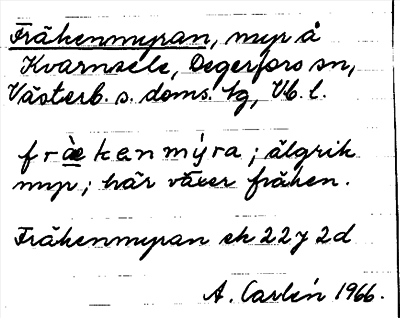 Fräkenmyran, myr å
Kvarnsele, Degerfors sn,
Västerb. s. doms. tg, Vb. l.
fræ̀kenmýra; älgrik
myr; här växer fräken.
Fräkenmyran ek 22 y 2d
A. Carlén 1966.